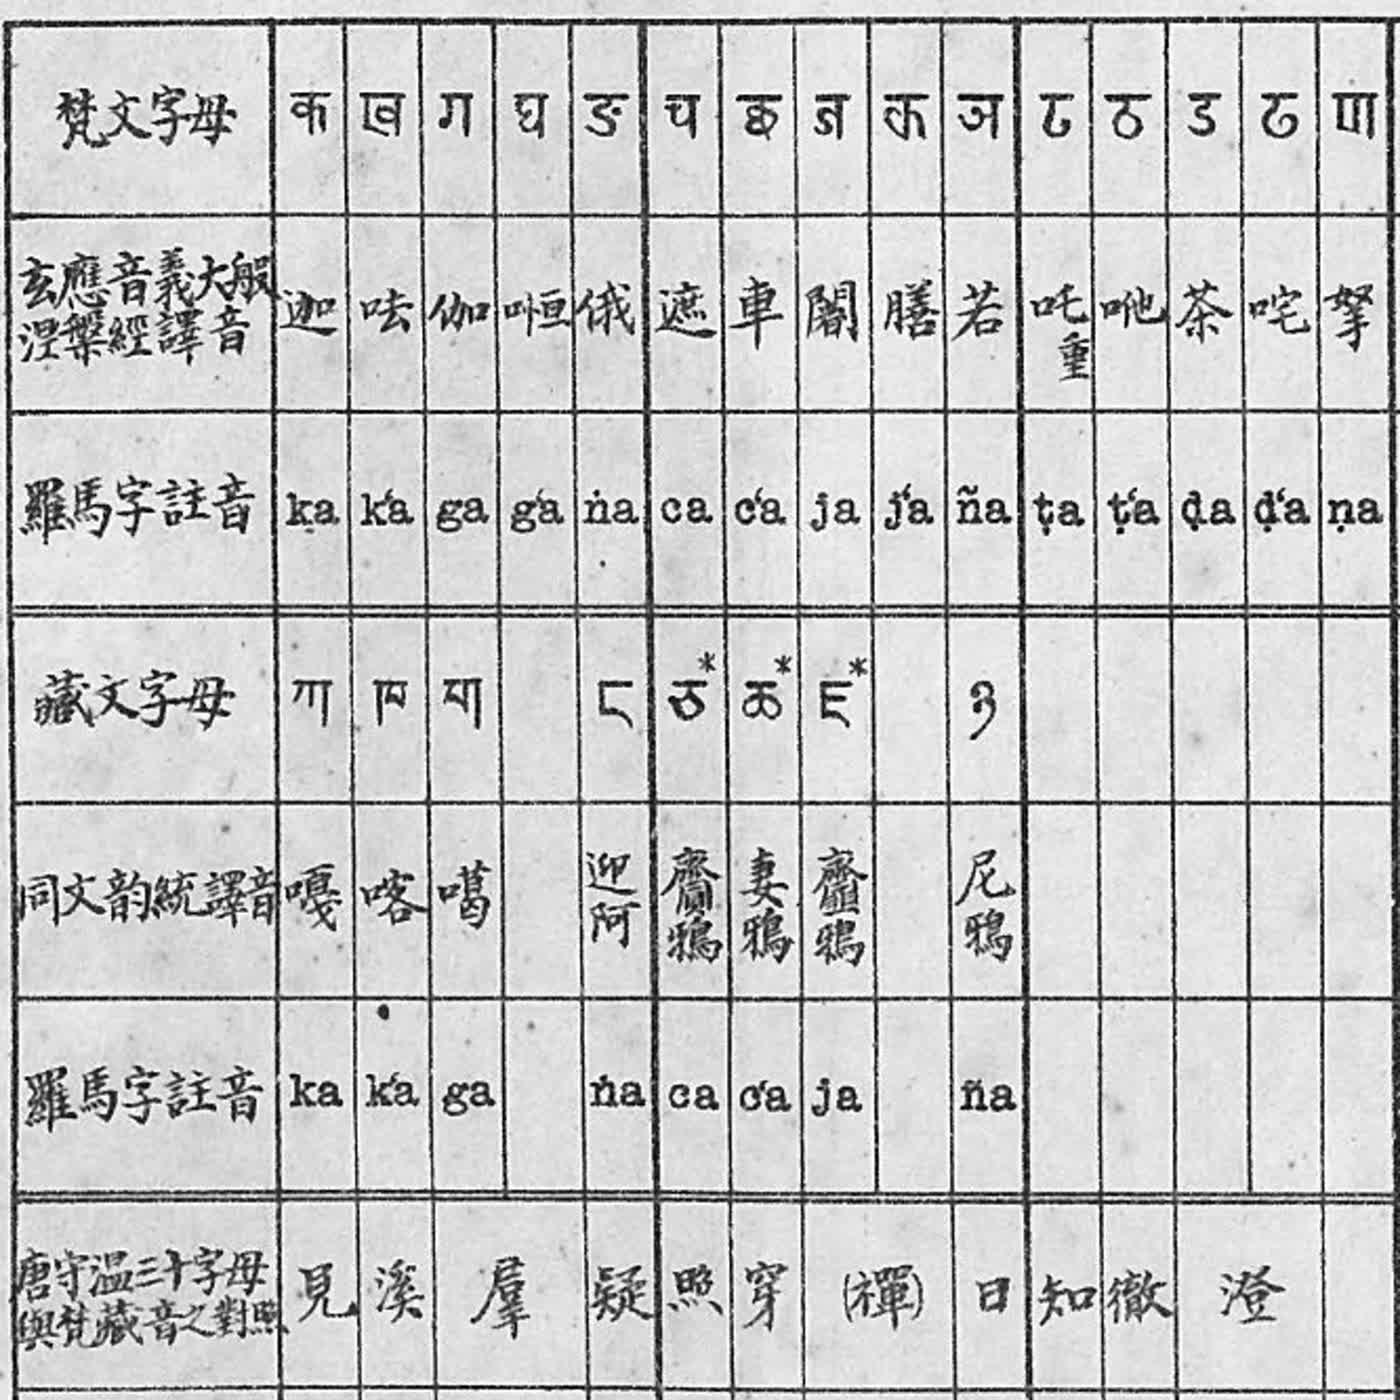 梵文字母 क ख ग घ ङ च छ ज झ ञ ट ठ ड ढ ण
玄應音義大般 迦 呿 伽 㖶 俄 遮 車 闍 膳 若 吒 咃 茶 咤 拏
涅槃經譯音 重
羅馬字註音 ka k‘a ga g‘a ṅa ca c‘a ja j‘a ña ṭa ṭ‘a ḍa ḍ‘a ṇa
藏文字母 ཀ ཁ ག ང ཅ* ཆ* ཇ* ཉ
同文韵統譯音 嘎 喀 噶 迎阿 齎鴉 妻鴉 齏鴉 尼鴉
羅馬字註音 ka k‘a ga ṅa ca c‘a ja ña
唐守溫三十字母 見 溪 羣 疑 照 穿 (禪) 日 知 徹 澄
與梵藏音之對照